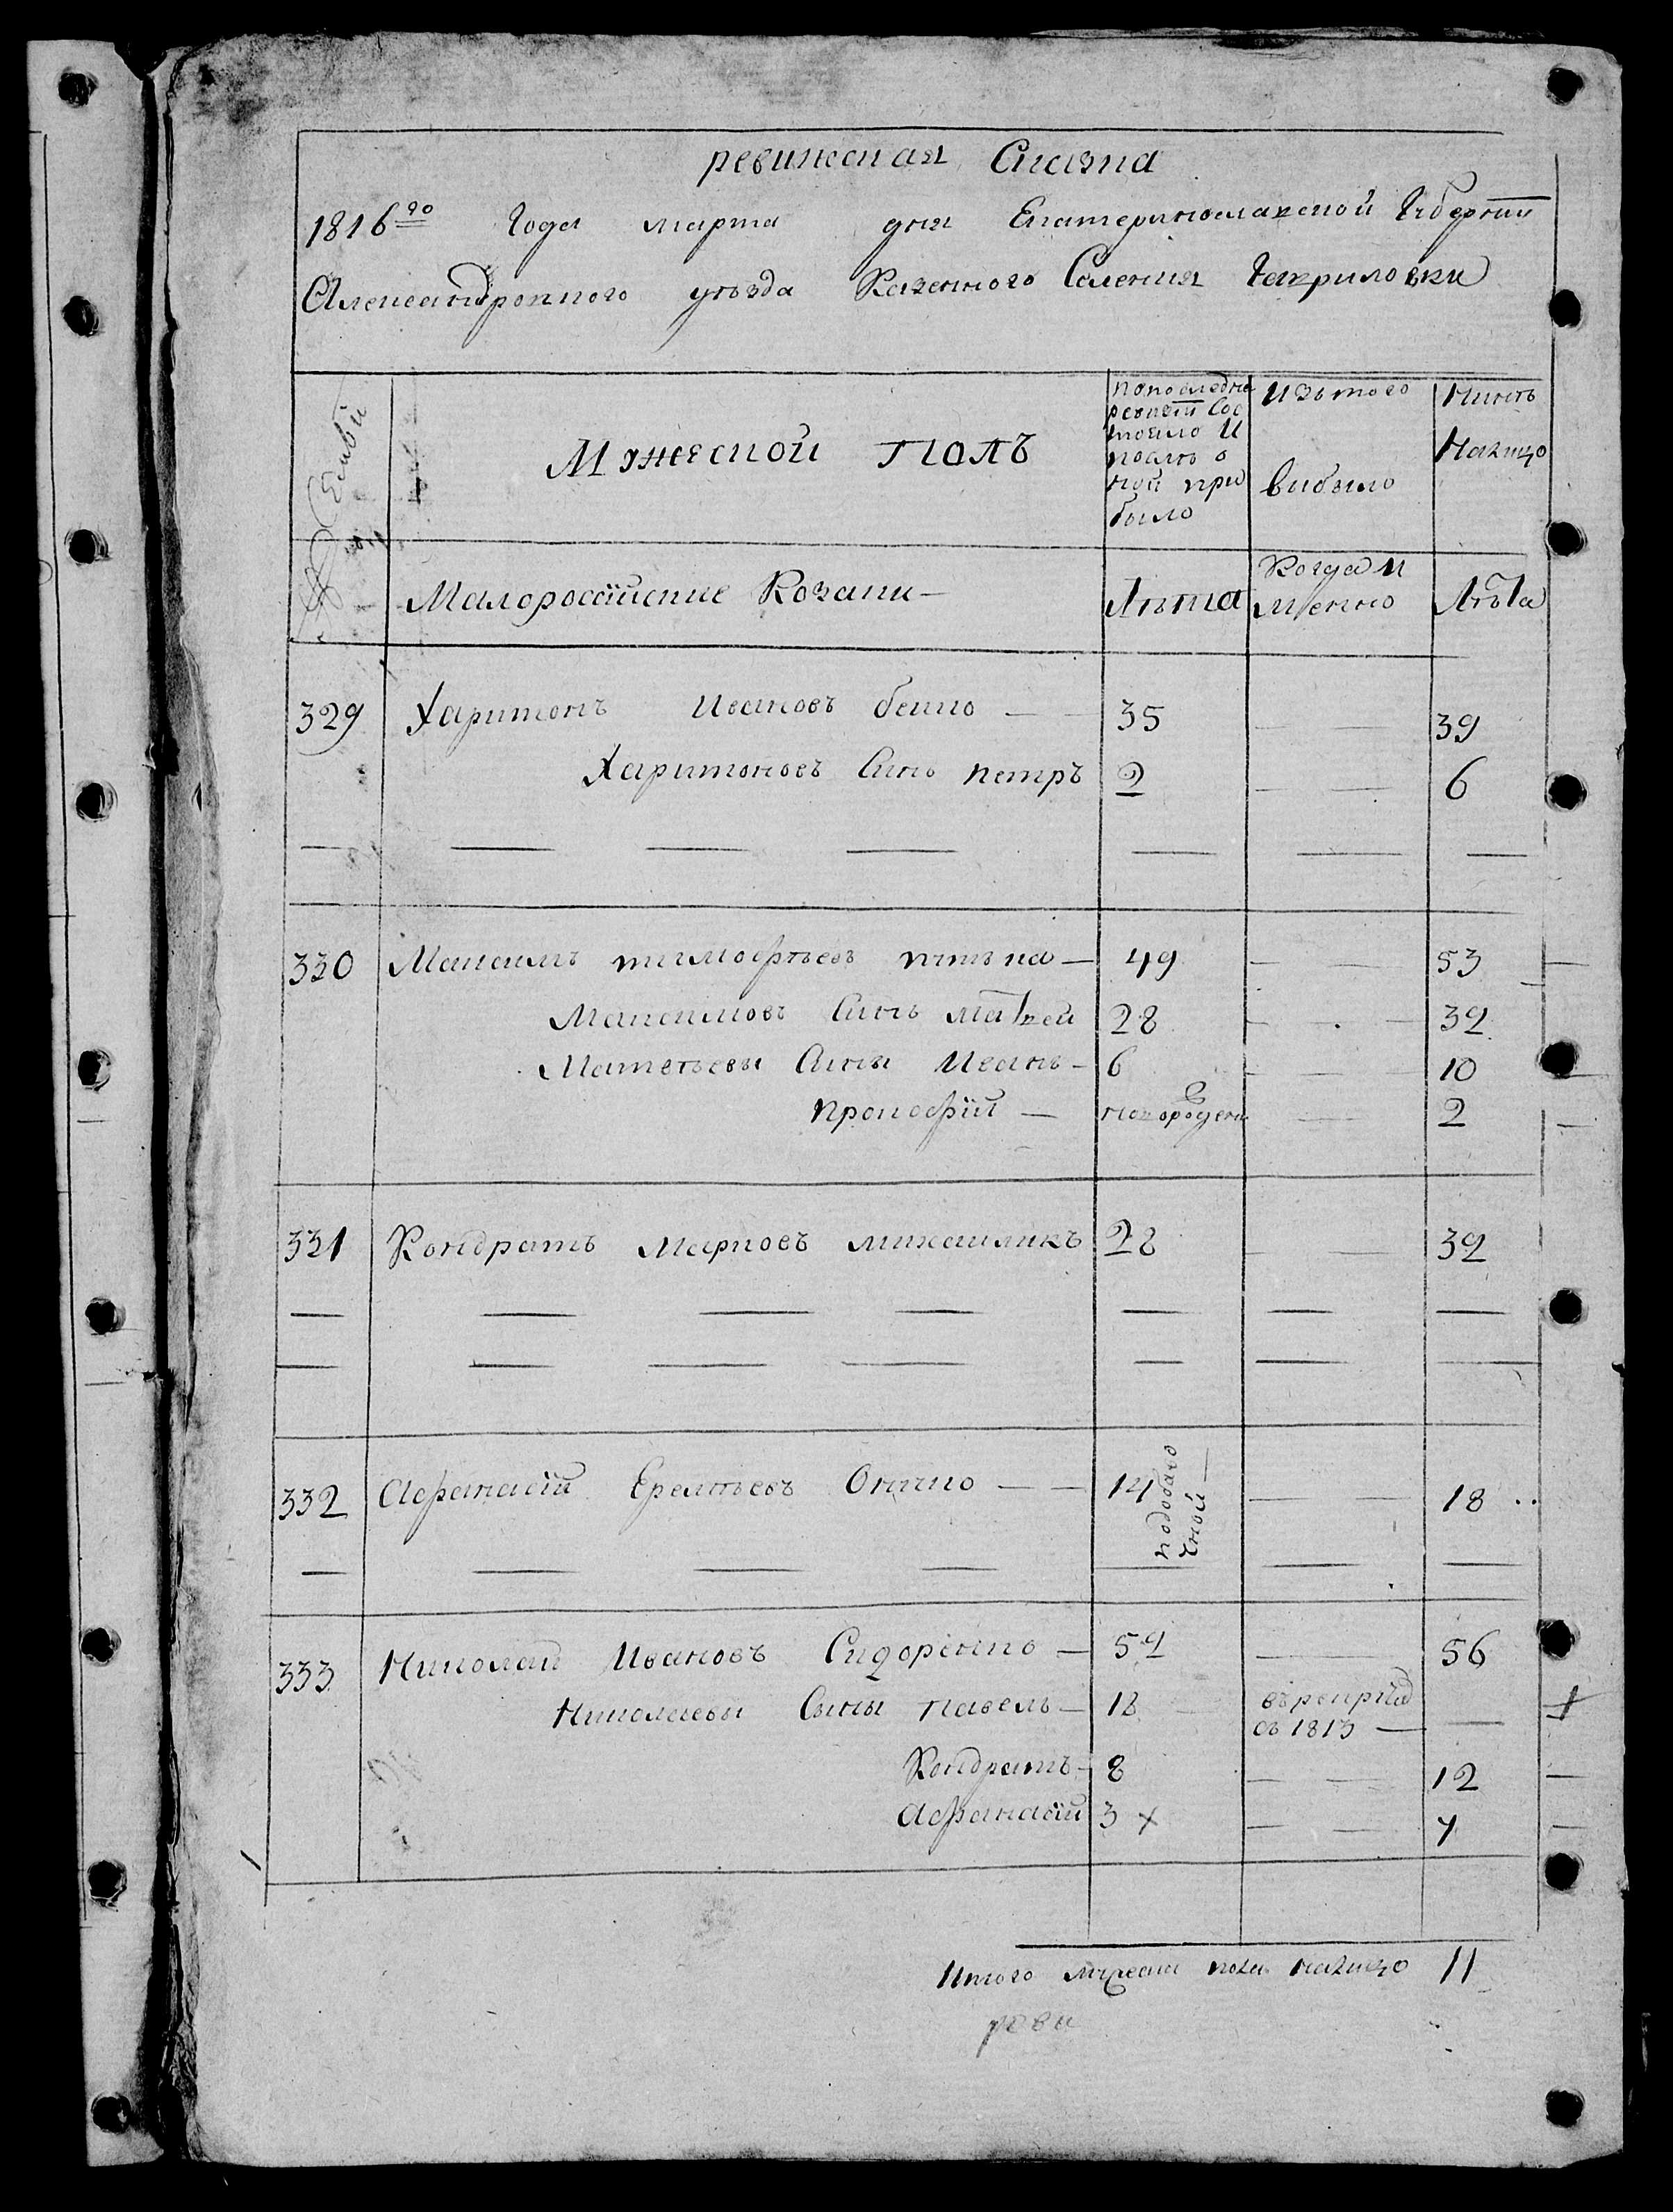 ревижская Сказка
1816го Года марта дня Екатеринославской Губерніи
Александровского уезда Казенного Селения Гавриловки
Мужеской полъ
попоследне
ревизіи Сос
тояло И
после о
ной при
было
Изъ того
выбыло
Нинѣ
Налицо
Малороссійские Козаки —
Лѣта
Когда И
мЕнно
Лѣта
329 Харитонъ Ивановъ — 35 — — 39
Харитоновъ Синъ петръ 2 — — 6
— — — — — — —
330 Максимъ тимофѣевъ — 49 — — 53
Максимовъ Синъ матвей 28 — — 32
Матвѣевы Сины Иванъ — 6 — — 10
прокофій — новорожден — 2
331 Кондратъ Марковъ михайликъ 28 — — 32
— — — — — — —
— — — — — — —
332 Афанасій — — 14 — — 18
— — — — — — —
333 Николай Ивановъ Сидоренко — 52 — 56
Николаевы Сыны павелъ — 18 въ рекрути
въ 1813 — —
Кондратъ — 8 — — 12
Афанасій 3 — — 7
Итого мужеска пола налицо 11
реви